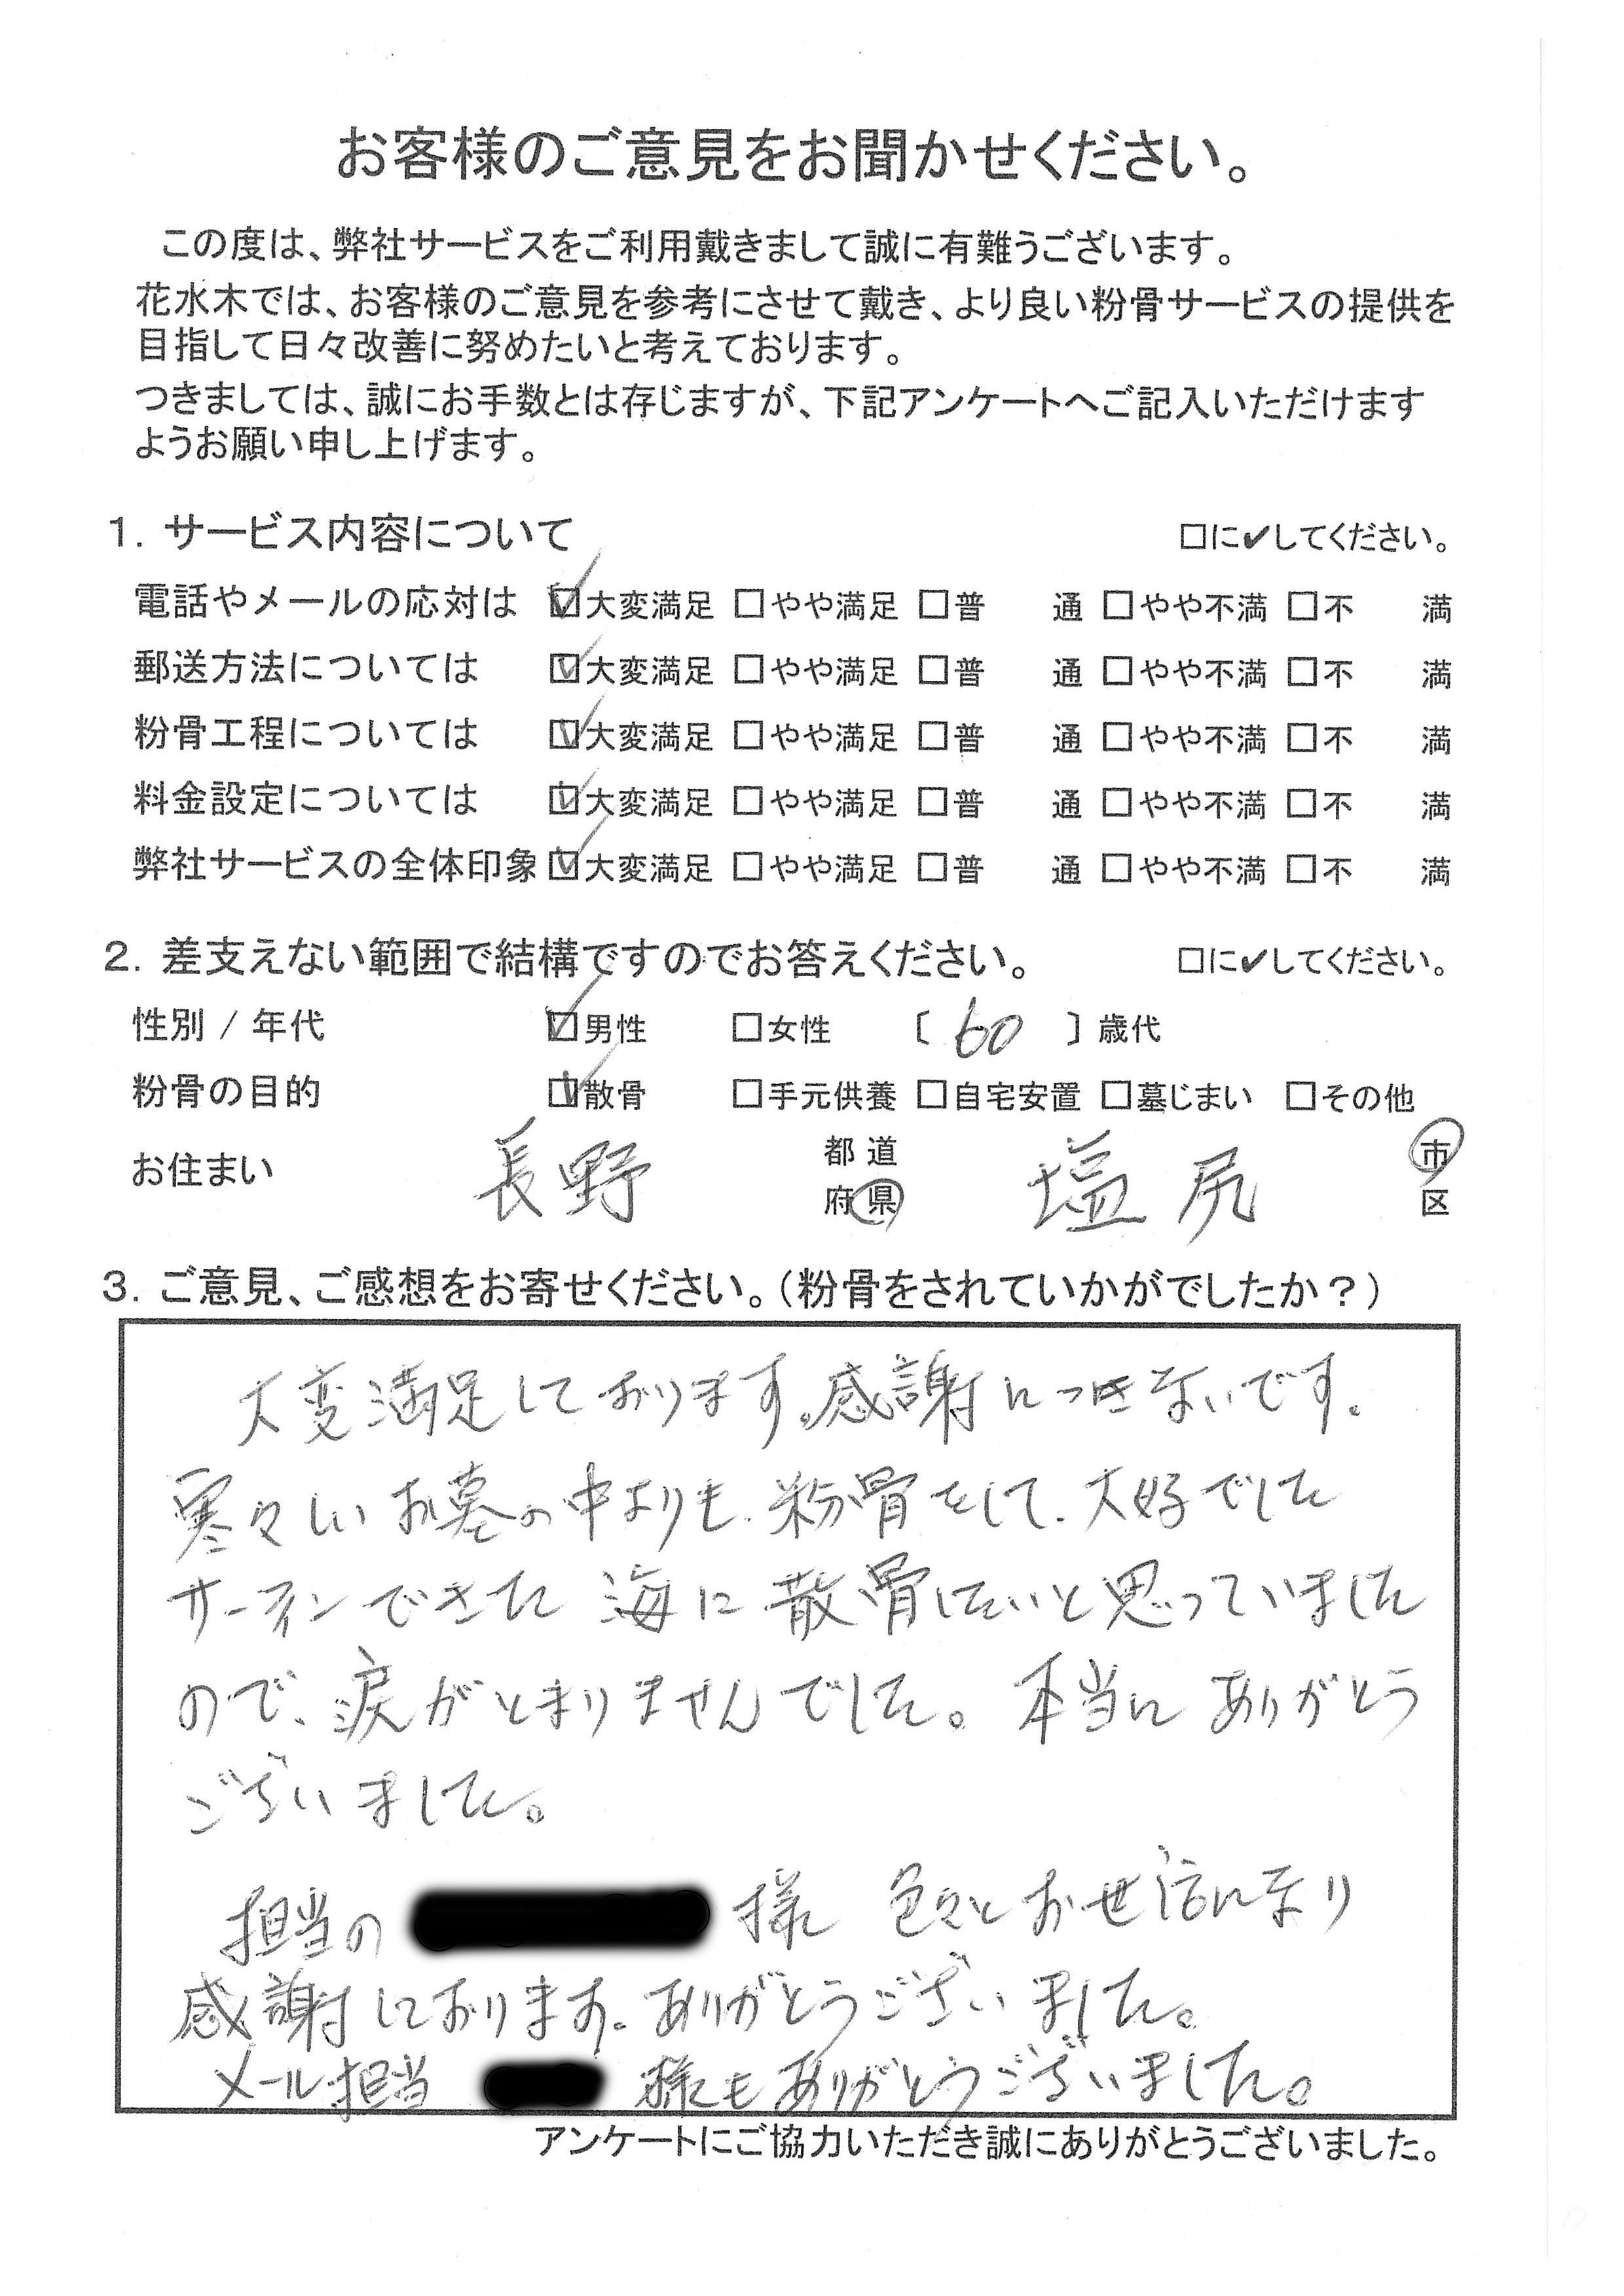 お客様のご意見をお聞かせください。
この度は、弊社サービスをご利用戴きまして誠に有難うございます。
花水木では、お客様のご意見を参考にさせて戴き、より良い粉骨サービスの提供を
目指して日々改善に努めたいと考えております。
つきましては、誠にお手数とは存じますが、下記アンケートへご記入いただけます
ようお願い申し上げます。
1. サービス内容について □に✔してください。
電話やメールの応対は ☑大変満足 □やや満足 □普 通 □やや不満 □不 満
郵送方法については ☑大変満足 □やや満足 □普 通 □やや不満 □不 満
粉骨工程については ☑大変満足 □やや満足 □普 通 □やや不満 □不 満
料金設定については ☑大変満足 □やや満足 □普 通 □やや不満 □不 満
弊社サービスの全体印象 ☑大変満足 □やや満足 □普 通 □やや不満 □不 満
2. 差支えない範囲で結構ですのでお答えください。 □に✔してください。
性別 / 年代 ☑男性 □女性 〔 60 〕歳代
粉骨の目的 ☑散骨 □手元供養 □自宅安置 □墓じまい □その他
お住まい 長野 都道府県 塩尻 市区
3. ご意見、ご感想をお寄せください。（粉骨をされていかがでしたか？）
大変満足しております。感謝につきないです。
寒々しいお墓の中よりも、粉骨をして、大好でした
サーフィンできた 海に散骨したいと思っていました
ので、涙がとまりませんでした。本当に ありがとう
ございました。
担当の 様 色々とお世話になり
感謝しております。ありがとうございました。
メール担当 様にもありがとうございました。
アンケートにご協力いただき誠にありがとうございました。